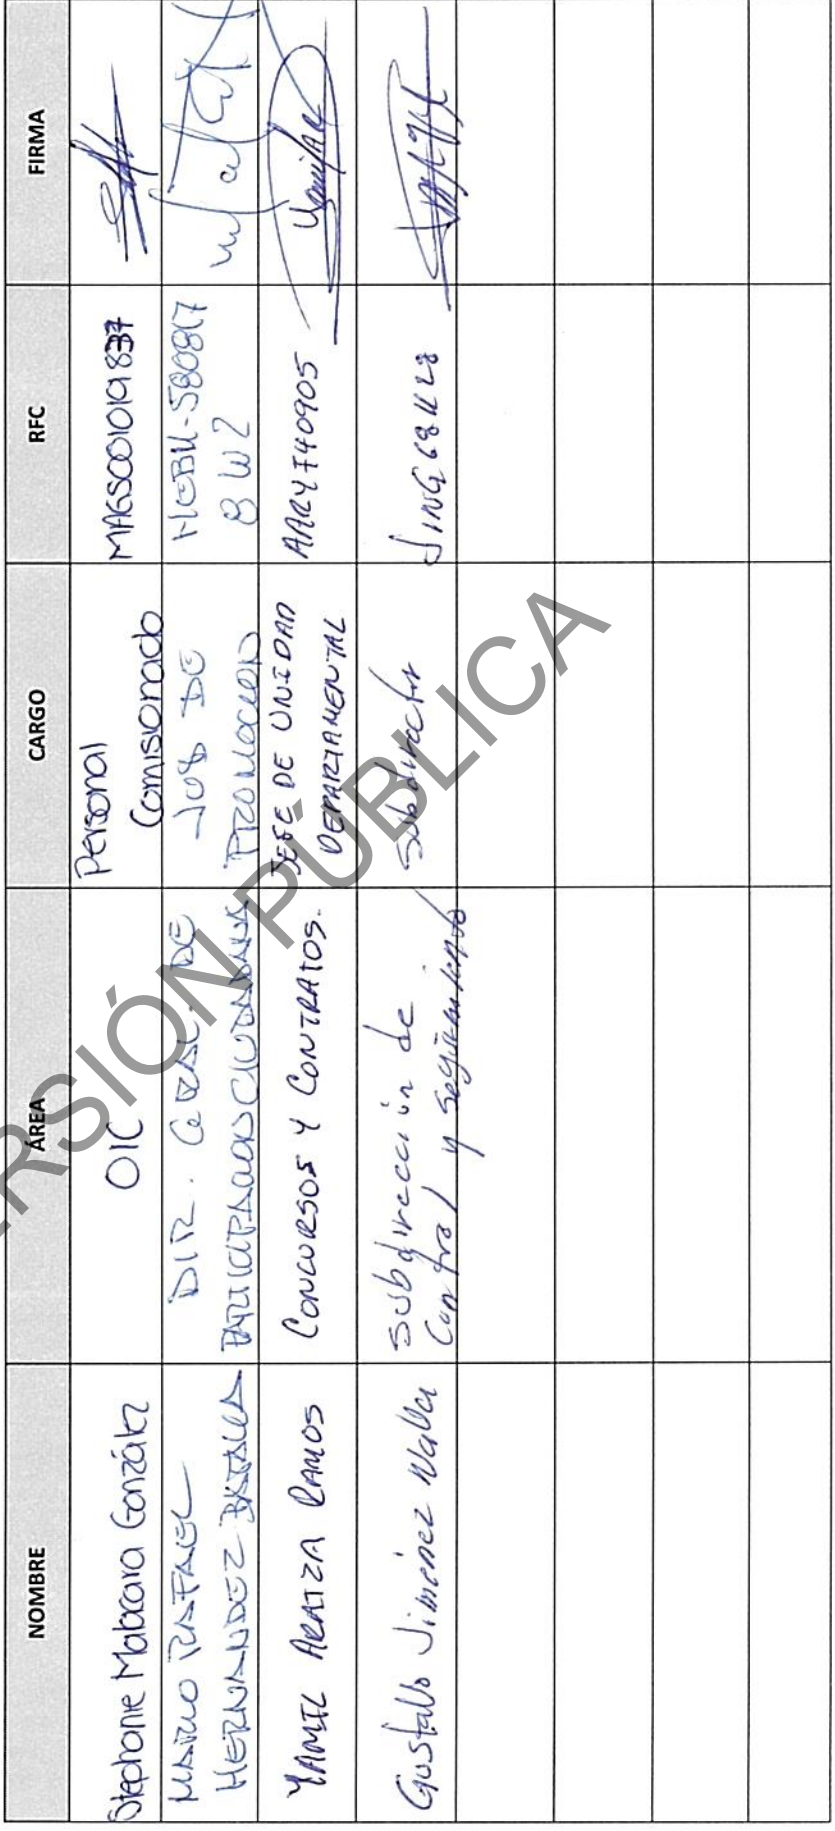 NOMBRE
ÁREA
CARGO
RFC
FIRMA
Stephanie Malacara González
OIC
Personal
Comisionado
MAGS001019837
MARIO RAFAEL
HERNANDEZ BATALLA
DIR. GRAL. DE
PARTICIPACION CIUDADANA
JUD DE
PROMOCION
HEBM-580817
8W2
YAMIL ARAIZA RAMOS
CONCURSOS Y CONTRATOS.
JEFE DE UNIDAD
DEPARTAMENTAL
AARY740905
Gustavo Jiménez
Subdirección de
Control y Seguimiento
Subdirector
VERSIÓN PÚBLICA